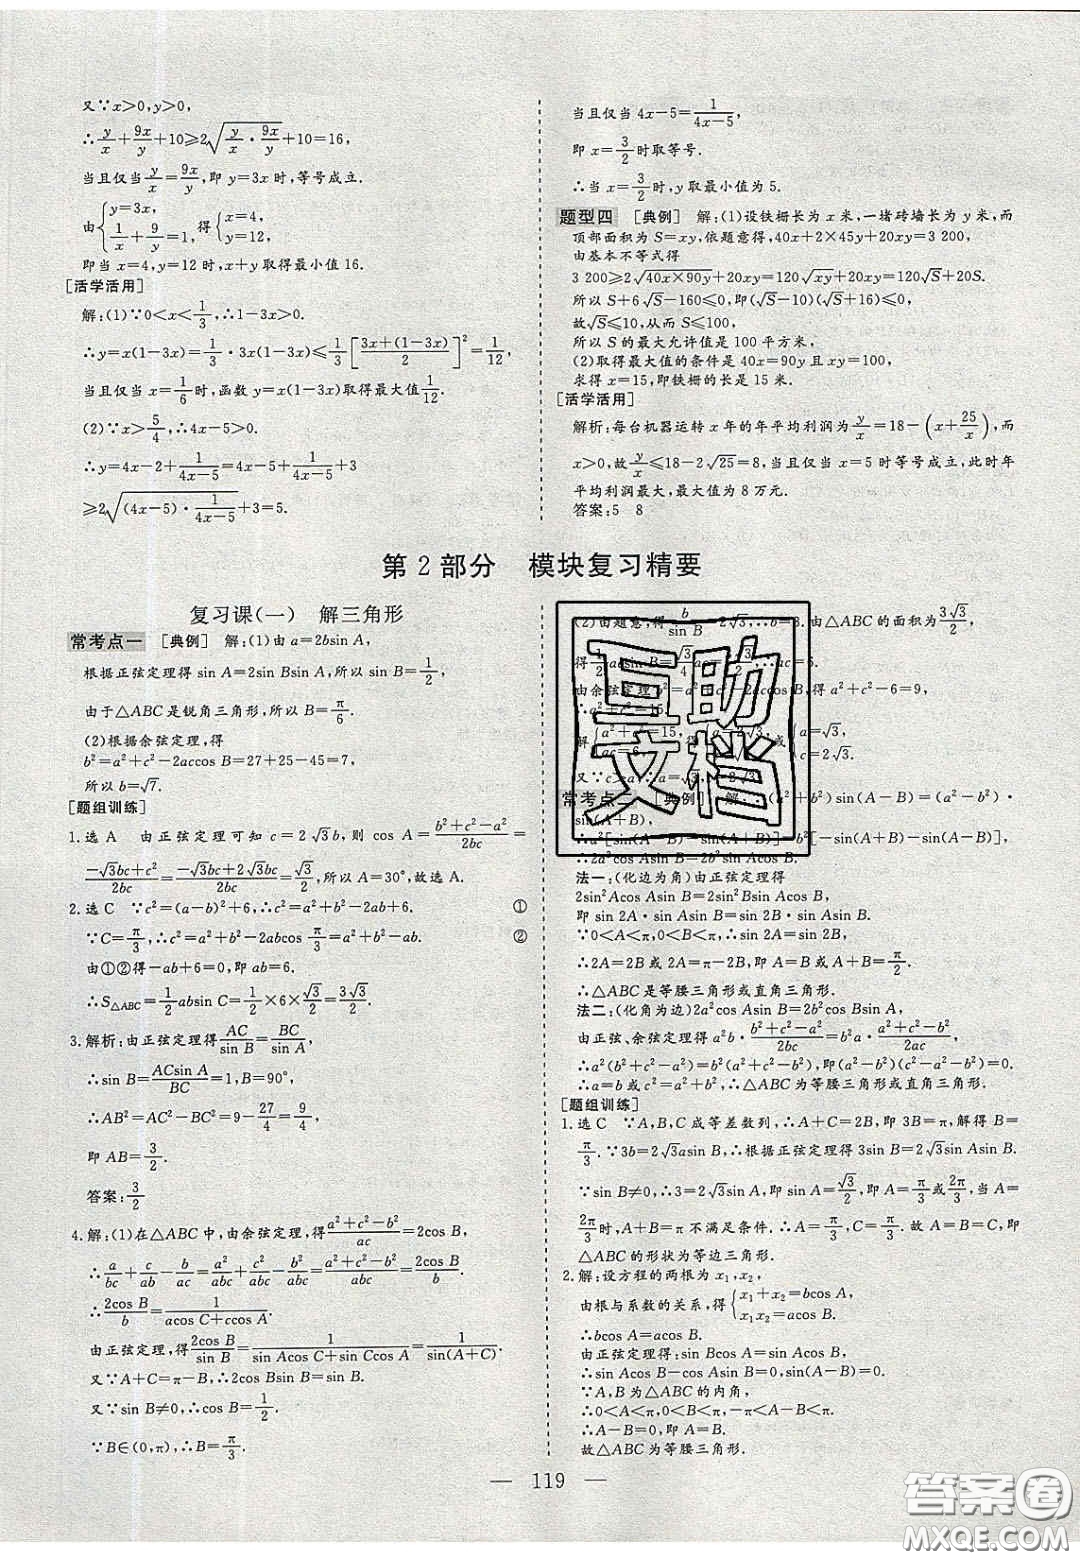 又∵x>0,y>0,
∴y/x+9x/y+10≥2√(y/x·9x/y)+10=16,
当且仅当y/x=9x/y,即y=3x时,等号成立.
由{y=3x, 1/x+9/y=1,得{x=4, y=12,
即当x=4,y=12时,x+y取得最小值16.
[活学活用]
解:(1)∵0<x<1/3,∴1-3x>0.
∴y=x(1-3x)=1/3·3x(1-3x)≤1/3[(3x+(1-3x))/2]²=1/12,
当且仅当x=1/6时,函数y=x(1-3x)取得最大值1/12.
(2)∵x>5/4,∴4x-5>0.
∴y=4x-2+1/(4x-5)=4x-5+1/(4x-5)+3
≥2√((4x-5)·1/(4x-5))+3=5.
当且仅当4x-5=1/(4x-5),
即x=3/2时取等号.
∴当x=3/2时,y取最小值为5.
题型四 [典例] 解:(1)设铁栅长为x米,一堵砖墙长为y米,而
顶部面积为S=xy,依题意得,40x+2×45y+20xy=3 200,
由基本不等式得
3 200≥2√(40x×90y)+20xy=120√(xy)+20xy=120√S+20S.
所以S+6√S-160≤0,即(√S-10)(√S+16)≤0,
故√S≤10,从而S≤100,
所以S的最大允许值是100平方米.
(2)取得最大值的条件是40x=90y且xy=100,
求得x=15,即铁栅的长是15米.
[活学活用]
解析:每台机器运转x年的年平均利润为y/x=18-(x+25/x),而
x>0,故y/x≤18-2√25=8,当且仅当x=5时等号成立,此时年
平均利润最大,最大值为8万元.
答案:5 8
第2部分 模块复习精要
复习课(一) 解三角形
常考点一 [典例] 解:(1)由a=2bsin A,
根据正弦定理得sin A=2sin Bsin A,所以sin B=1/2,
由于△ABC是锐角三角形,所以B=π/6.
(2)根据余弦定理,得
b²=a²+c²-2accos B=27+25-45=7,
所以b=√7.
[题组训练]
1.选A 由正弦定理可知c=2√3b,则cos A=(b²+c²-a²)/2bc=
(-√3bc+c²)/2bc=(-√3bc+2√3bc)/2bc=√3/2,所以A=30°,故选A.
2.选C ∵c²=(a-b)²+6,∴c²=a²+b²-2ab+6. ①
∵C=π/3,∴c²=a²+b²-2abcos π/3=a²+b²-ab. ②
由①②得-ab+6=0,即ab=6.
∴S△ABC=1/2absin C=1/2×6×√3/2=3√3/2.
3.解析:由正弦定理得AC/sin B=BC/sin A,
∴sin B=ACsin A/BC=1,B=90°,
∴AB²=AC²-BC²=9-27/4=9/4,
即AB=3/2.
答案:3/2
4.解:(1)在△ABC中,由余弦定理,得(a²+c²-b²)/ac=2cos B,
∴a/bc+c/ab-b/ac=a²/abc+c²/abc-b²/abc=(a²+c²-b²)/abc=2cos B/b.
∴2cos B/b=1/(acos C+ccos A).
由正弦定理,得2cos B/sin B=1/(sin Acos C+sin Ccos A)=1/sin(A+C).
又∵A+C=π-B,∴2cos Bsin B=sin B.
又∵sin B≠0,∴cos B=1/2,
∵B∈(0,π),∴B=π/3.
(2)由题意,得b/sin B=2√3,∴b=3.由△ABC的面积为3√3/2,
得1/2acsin B=√3/4ac=3√3/2,∴ac=6.
由余弦定理b²=a²+c²-2accos B,得a²+c²-6=9,
∴a²+c²=15.
常考点二 [典例] 解:
sin(A+B),
∴a²[sin(A-B)-sin(A+B)]=b²[-sin(A+B)-sin(A-B)],
∴2a²cos Asin B=2b²sin Acos B.
法一:(化边为角)由正弦定理得
2sin²Acos Asin B=2sin²Bsin Acos B.
即sin 2A·sin Asin B=sin 2B·sin Asin B.
∵0<A<π,0<B<π,∴sin 2A=sin 2B,
∴2A=2B或2A=π-2B,即A=B或A+B=π/2.
∴△ABC是等腰三角形或直角三角形.
法二:(化角为边)2a²cos Asin B=2b²cos Bsin A,
由正弦、余弦定理得a²b·(b²+c²-a²)/2bc=b²a·(a²+c²-b²)/2ac,
∴a²(b²+c²-a²)=b²(a²+c²-b²),即(a²-b²)(c²-a²-b²)=0.
∴a=b或c²=a²+b²,∴△ABC为等腰三角形或直角三角形.
[题组训练]
1.选C ∵A,B,C成等差数列,∴A+C=2B,即3B=π,解得B=
π/3.∵3b=2√3asin B,∴根据正弦定理得3sin B=2√3sin Asin B.
∵sin B≠0,∴3=2√3sin A,即sin A=√3/2,即A=π/3或2π/3,当A=
2π/3时,A+B=π不满足条件.∴A=π/3,C=π/3.故A=B=C,即
△ABC的形状为等边三角形.
2.解:设方程的两根为x₁,x₂,
由根与系数的关系,得{x₁+x₂=bcos A, x₁x₂=acos B.
∴bcos A=acos B.
由正弦定理得:sin Bcos A=sin Acos B,
∴sin Acos B-cos Asin B=0,sin(A-B)=0.
∵A,B为△ABC的内角,
∴0<A<π,0<B<π,-π<A-B<π.
∴A-B=0,即A=B.
故△ABC为等腰三角形.
互助
文档
— 119 —
答案圈
MXQE.COM